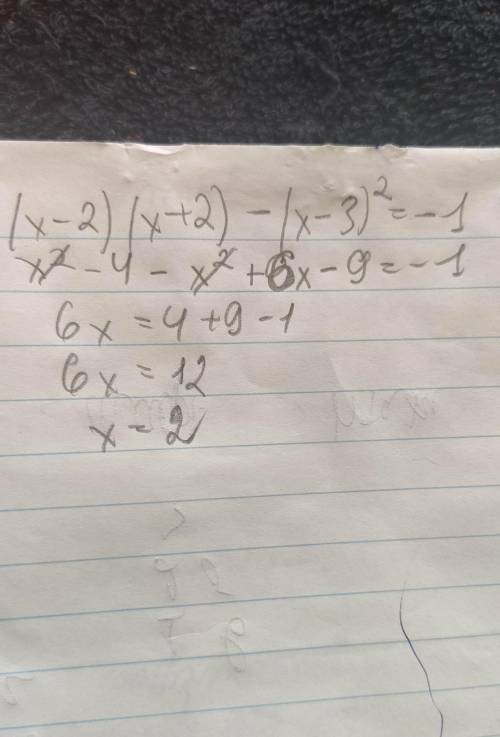 (x-2)(x+2)-(x-3)²=-1
x²-4-x²+6x-9=-1
6x=4+9-1
6x=12
x=2